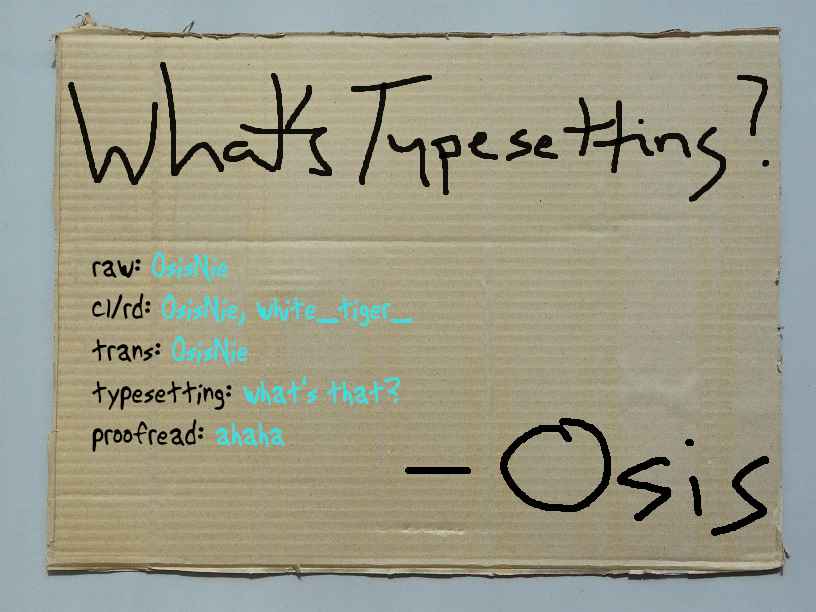 What's Typesetting?
raw: OsisNie
cl/rd: OsisNie, white_tiger_
trans: OsisNie
typesetting: what's that?
proofread: ahaha
— Osis